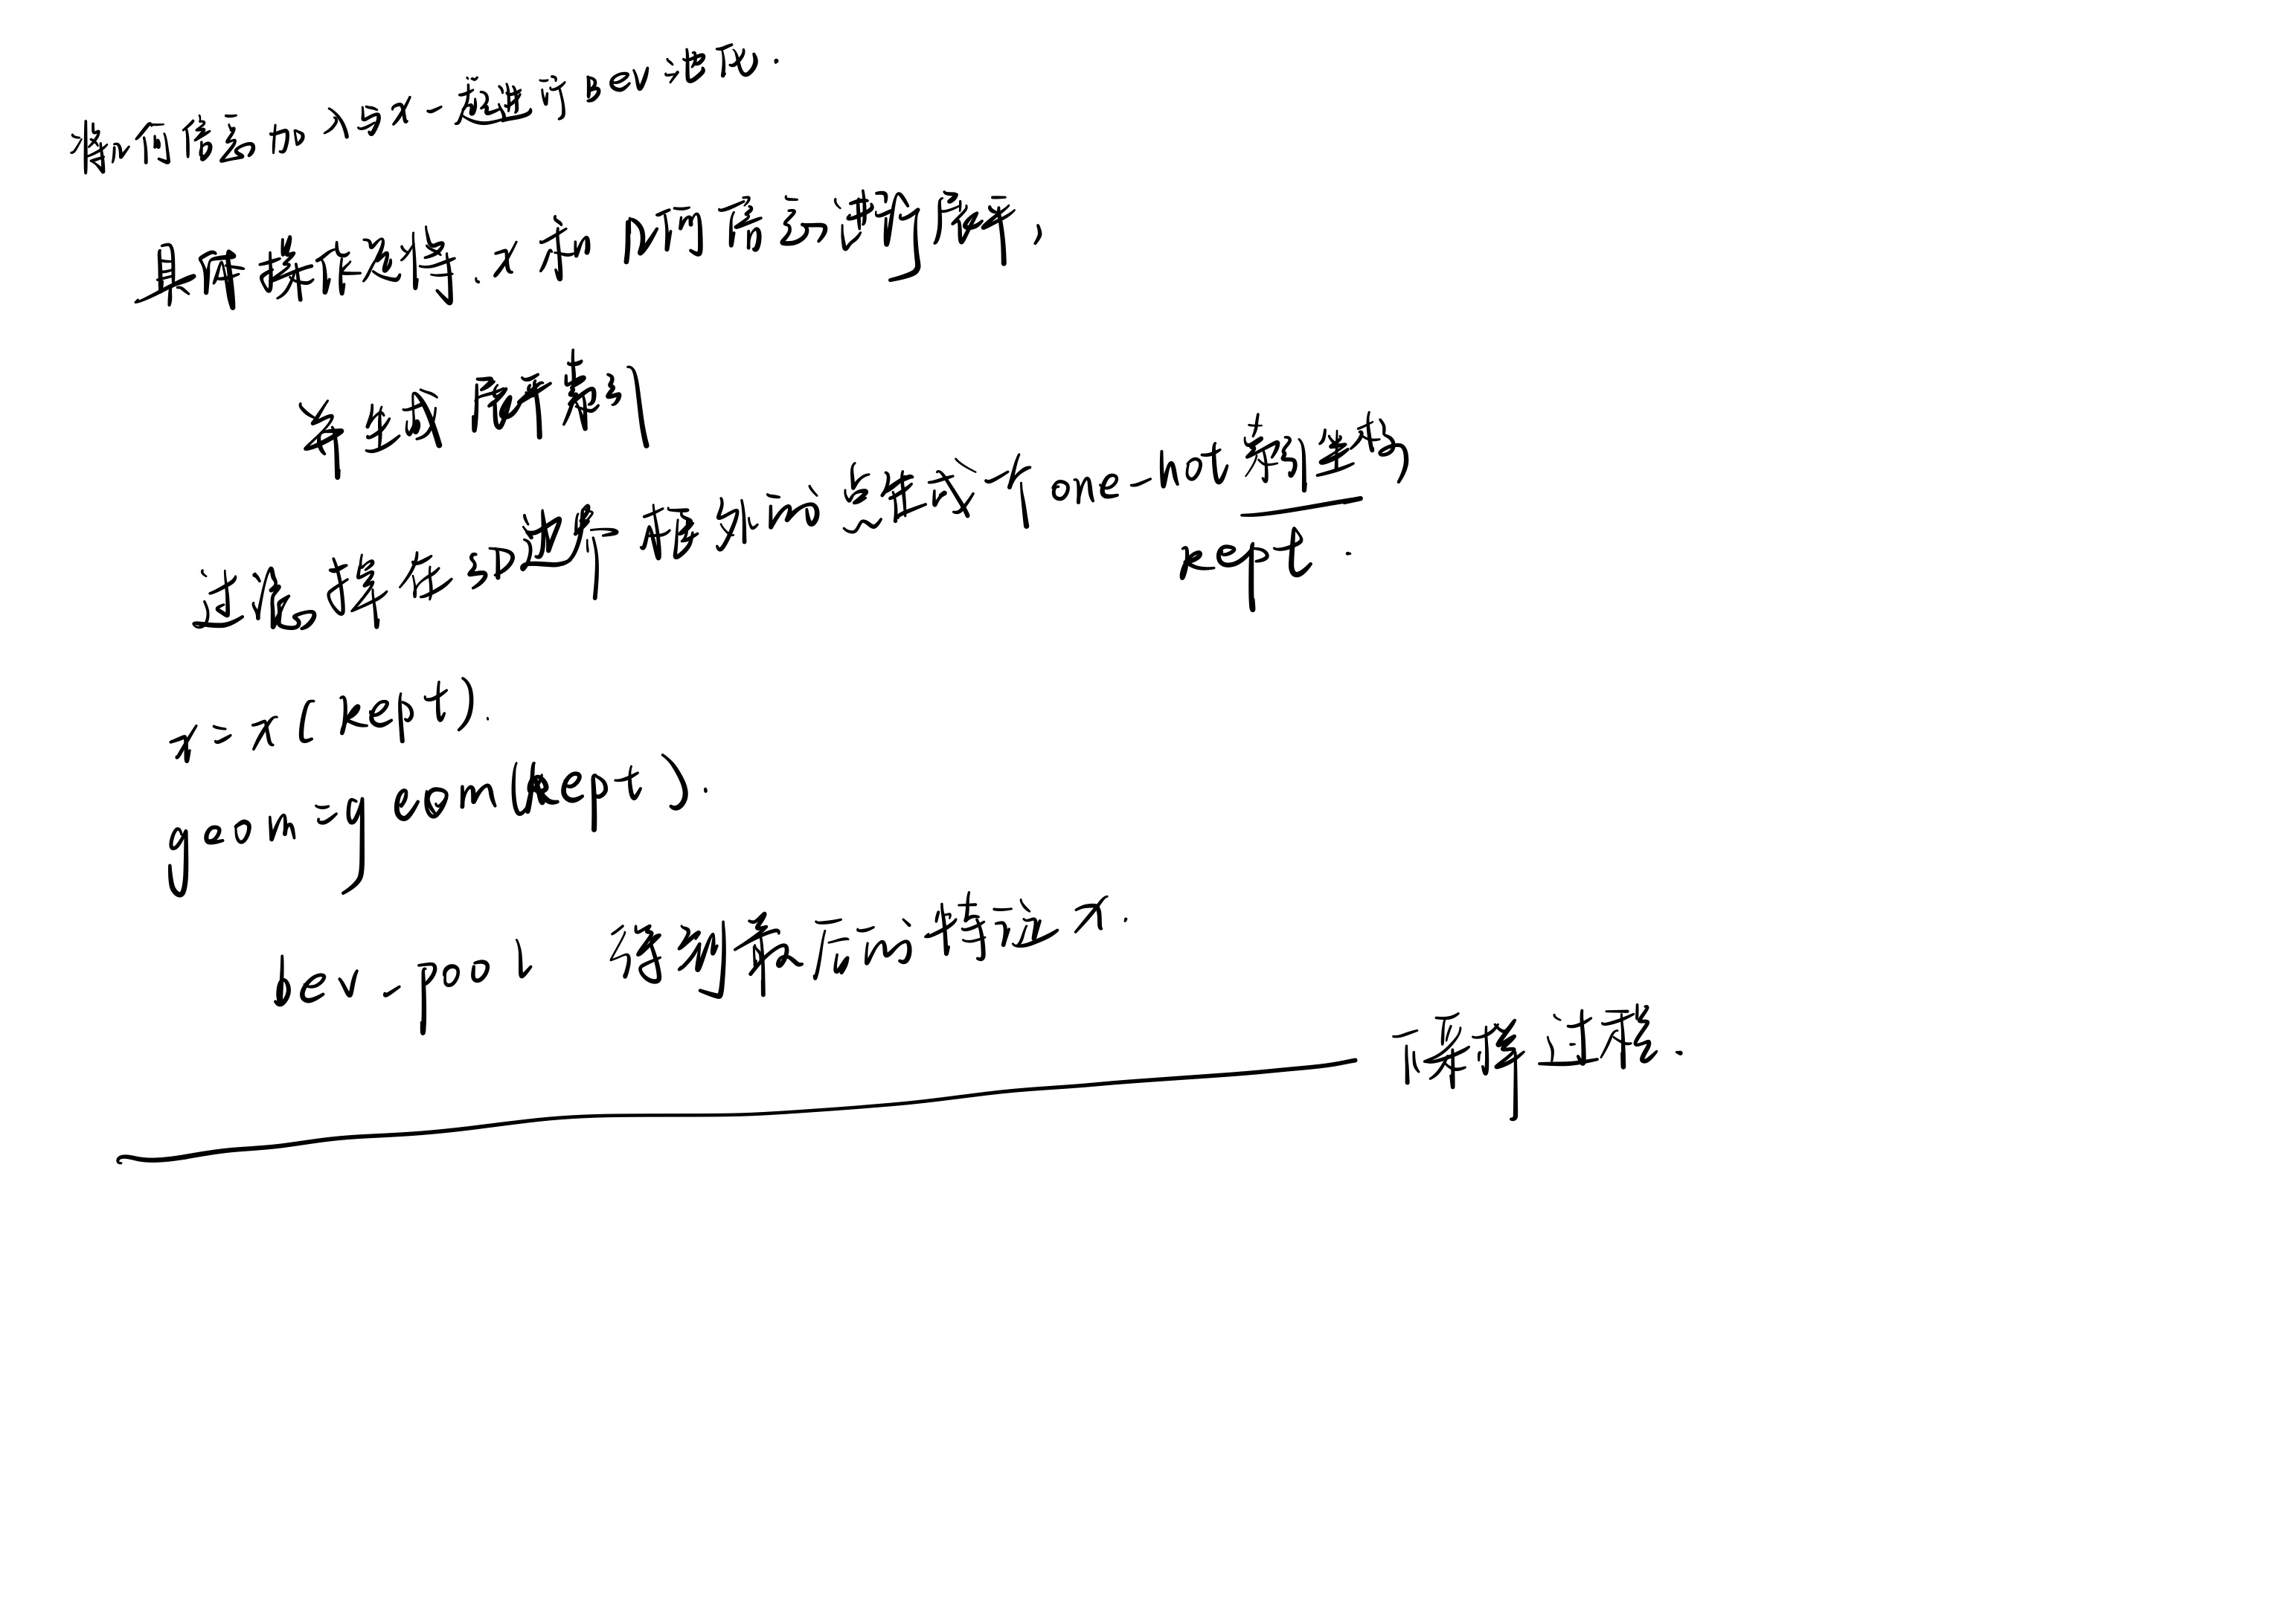 将几何信息加入与x一起进行Bev池化.
具体操作是将.x和几何信息都展平,
并生成展平索引
过滤掉在边界框外的点生成一个one-hot索引坐标
kept.
x=x(kept).
geom=geom(kept).
bev_pool 得到最后的特征x.
下采样过程.